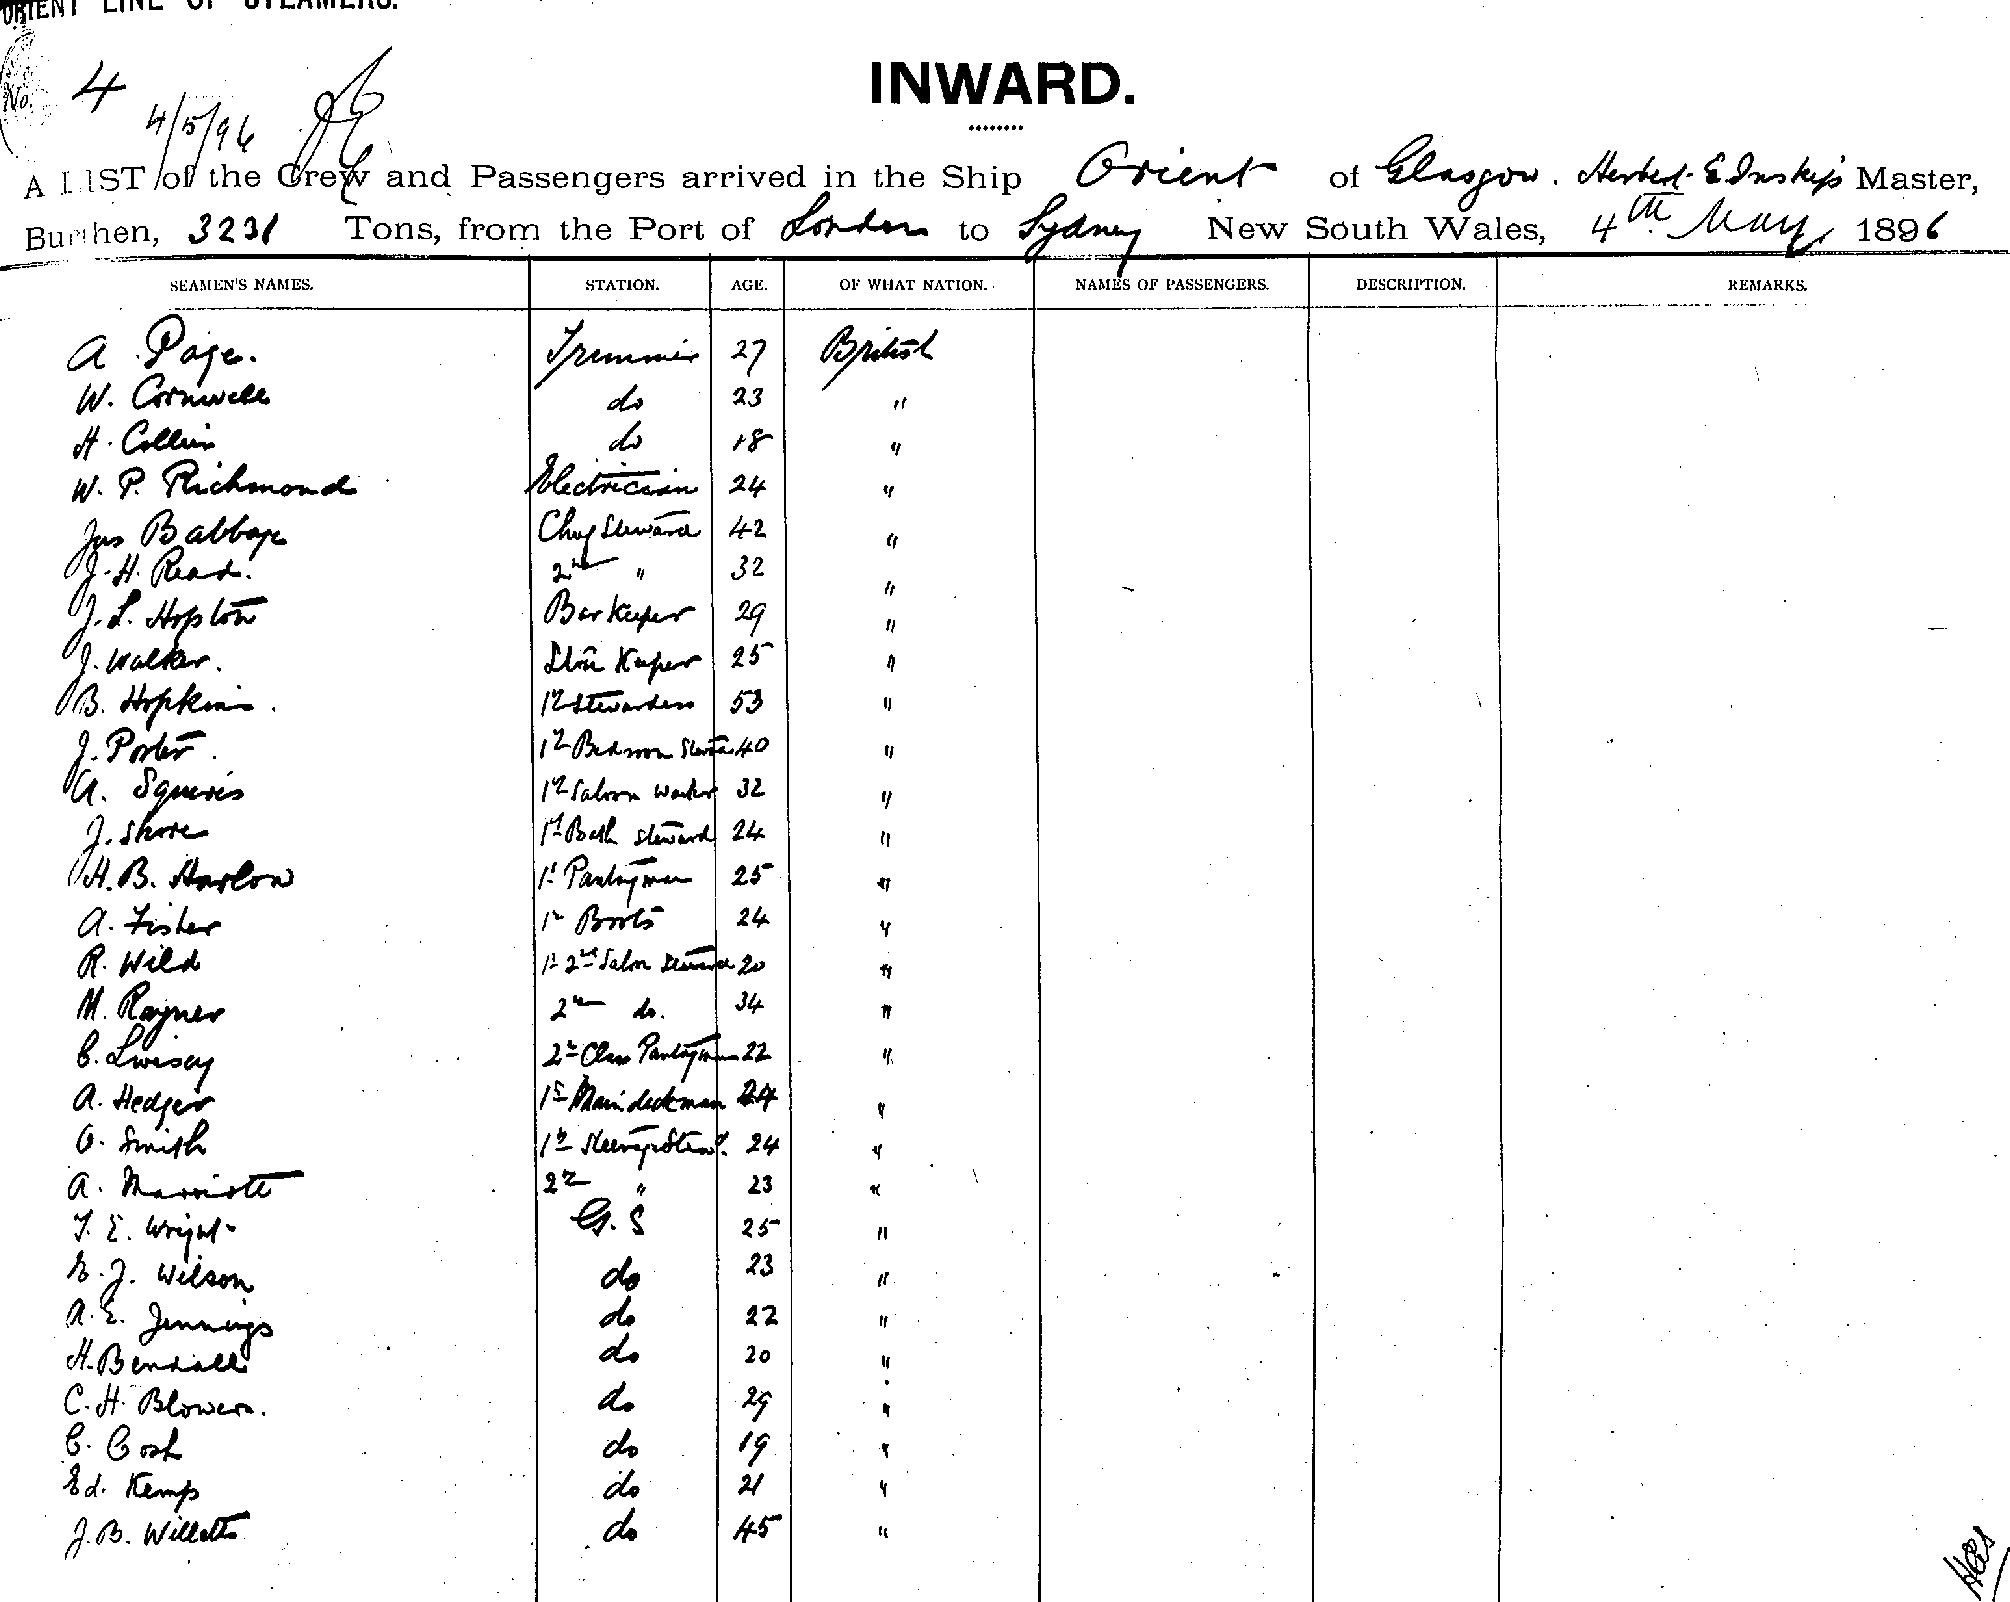 ORIENT LINE OF STEAMERS.
No. 4
4/5/96
INWARD.
A LIST of the Crew and Passengers arrived in the Ship Orient of Glasgow. Herbert E Inskip Master,
Burthen, 3231 Tons, from the Port of London to Sydney New South Wales, 4th May 1896
SEAMEN'S NAMES. STATION. AGE. OF WHAT NATION. NAMES OF PASSENGERS. DESCRIPTION. REMARKS.
A Page. Trimmer 27 British
W. Cornwell do 23 "
H. Collin do 18 "
W. P. Richmond Electrician 24 "
Jas Babbage Chief Steward 42 "
J. H. Read. 2nd " 32 "
J. L. Hopton Bar Keeper 29 "
J. Walker. Store Keeper 25 "
B. Hopkins. 1st Stewardess 53 "
J. Porter. 1st Bedroom Steward 40 "
A. Squires 1st Saloon Waiter 32 "
J. Shore 1st Bath Steward 24 "
H. B. Harlow 1st Pantryman 25 "
A. Fisher 1st Boots 24 "
R. Wild 1st 2nd Saloon Steward 20 "
M. Rayner 2nd do. 34 "
C. Livisey 2nd Class Pantryman 22 "
A. Hedger 1st Maindeckman 24 "
G. Smith 1st Steerage Stewd. 24 "
A. Marriott 2nd " 23 "
T. E. Wright G. S 25 "
E. J. Wilson do 23 "
A. E. Jennings do 22 "
H. Bendall do 20 "
C. H. Blowers. do 29 "
C. Cosh do 19 "
Ed. Kemp do 21 "
J. B. Willetts do 45 "